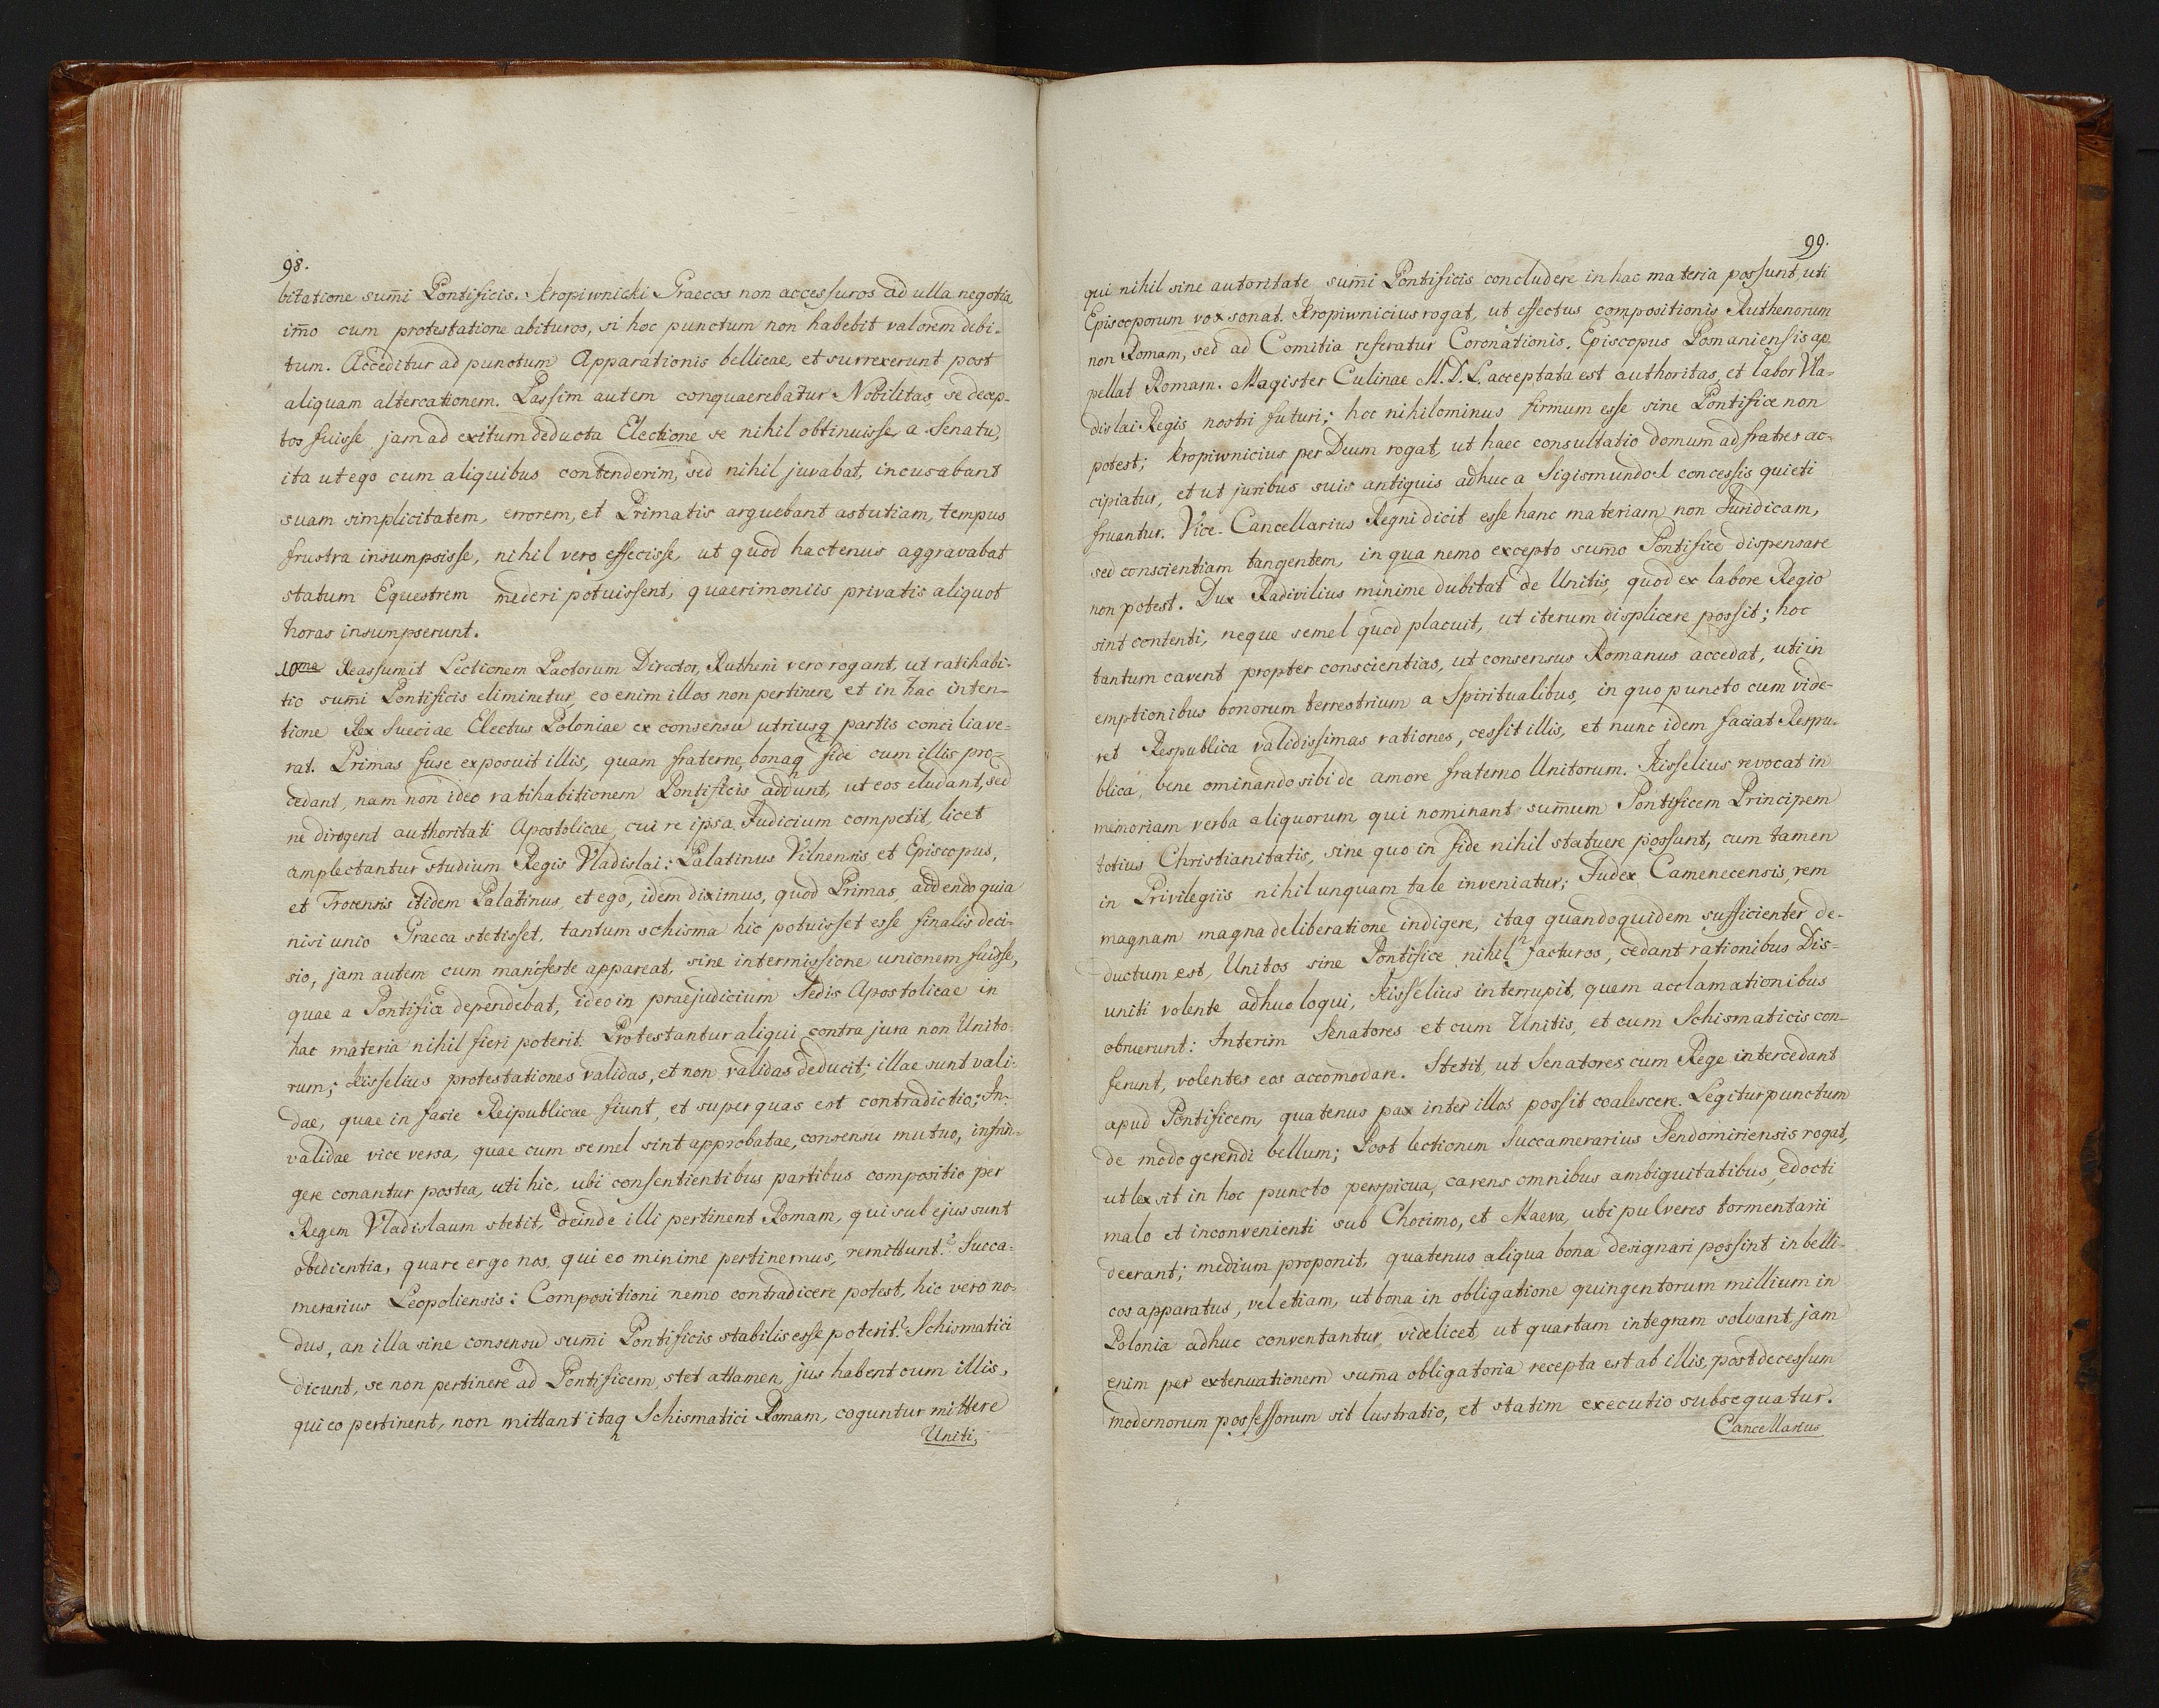 98.
bitatione sum̄i Pontificis. Kropiwnicki Graecos non accessuros ad ulla negotia,
im̄o cum protestatione abituros, si hoc punctum non habebit valorem debi-
tum. Acceditur ad punctum Apparationis bellicae, et surrexerunt post
aliquam altercationem. Passim autem conquaerebatur Nobilitas, se decep-
tos fuisse, jam ad exitum deducta Electione se nihil obtinuisse a Senatu,
ita ut ego cum aliquibus contenderim, sed nihil juvabat, incusabant
suam simplicitatem, errorem, et Primatis arguebant astutiam, tempus
frustra insumpsisse, nihil vero effecisse, ut quod hactenus aggravabat
statum Equestrem mederi potuissent, quaerimoniis privatis aliquot
horas insumpserunt.
10ma Reassumit Lectionem Pactorum Director, Rutheni vero rogant, ut ratihabi-
tio sum̄i Pontificis eliminetur, eo enim illos non pertinere, et in hac inten-
tione Rex Sueciae Electus Poloniae ex consensu utriusq partis conciliave-
rat. Primas fuse exposuit illis, quam fraterne, bonaq fide cum illis pro-
cedant, nam non ideo ratihabitionem Pontificis addunt, ut eos eludant, sed
ne dirogent authoritati Apostolicae, cui re ipsa Judicium competit, licet
amplectantur studium Regis Vladislai: Palatinus Vilnensis et Episcopus,
et Trocensis itidem Palatinus, et ego, idem diximus, quod Primas, addendo quia
nisi unio Graeca stetisset, tantum schisma hic potuisset esse finalis deci-
sio, jam autem cum manifeste appareat, sine intermissione unionem fuisse,
quae a Pontifice dependebat, ideo in praejudicium Sedis Apostolicae in
hac materia nihil fieri poterit. Protestantur aliqui contra jura non Unito-
rum; Kisselius protestationes validas, et non validas deducit; illae sunt vali-
dae, quae in facie Reipublicae fiunt, et super quas est contradictio; In-
validae vice versa, quae cum semel sint approbatae, consensu mutuo, infrin-
gere conantur postea, uti hic, ubi consentientibus partibus compositio per
Regem Vladislaum stetit, deinde illi pertinent Romam, qui sub ejus sunt
obedientia, quare ergo nos, qui eo minime pertinemus, remittunt? Succa-
merarius Leopoliensis: Compositioni nemo contradicere potest, hic vero no-
dus, an illa sine consensu sum̄i Pontificis stabilis esse poterit? Schismatici
dicunt, se non pertinere ad Pontificem, stet attamen, jus habent cum illis,
qui eo pertinent, non mittant itaq Schismatici Romam, coguntur mittere
Uniti,
99.
qui nihil sine autoritate sum̄i Pontificis concludere in hac materia possunt, uti
Episcoporum vox sonat. Kropiwnicius rogat, ut effectus compositionis Ruthenorum
non Romam, sed ad Comitia referatur Coronationis. Episcopus Posnaniensis ap-
pellat Romam. Magister Culinae M.D.L. acceptata est authoritas, et labor Vla-
dislai Regis nostri futuri; hoc nihilominus firmum esse sine Pontifice non
potest; Kropiwnicius per Deum rogat, ut haec consultatio domum ad fratres ac-
cipiatur, et ut juribus suis antiquis adhuc a Sigismundo I concessis quieti
fruantur. Vice-Cancellarius Regni dicit esse hanc materiam non Juridicam,
sed conscientiam tangentem, in qua nemo excepto sum̄o Pontifice dispensare
non potest. Dux Radivilius minime dubitat de Unitis, quod ex labore Regio
sint contenti, neque semel quod placuit, ut iterum displicere possit; hoc
tantum cavent propter conscientias, ut consensus Romanus accedat, uti in
emptionibus bonorum terrestrium a Spiritualibus, in quo puncto cum vide-
ret Respublica validissimas rationes, cessit illis, et nunc idem faciat Respu-
blica, bene ominando sibi de amore fraterno Unitorum. Kisselius revocat in
memoriam verba aliquorum qui nominant sum̄um Pontificem Principem
totius Christianitatis, sine quo in fide nihil statuere possunt, cum tamen
in Privilegiis nihil unquam tale inveniatur; Judex Camenecensis, rem
magnam magna deliberatione indigere, itaq quandoquidem sufficienter de-
ductum est, Unitos sine Pontifice nihil facturos, cedant rationibus Dis-
uniti volente adhuc loqui, Kisselius interrupit, quem acclamationibus
obruerunt: Interim Senatores et cum Unitis, et cum Schismaticis con-
ferunt, volentes eos accomodare. Stetit, ut Senatores cum Rege intercedant
apud Pontificem, quatenus pax inter illos possit coalescere. Legitur punctum
de modo gerendi bellum; Post lectionem Succamerarius Sendomiriensis rogat,
ut lex sit in hoc puncto perspicua, carens omnibus ambiguitatibus, edocti
malo et inconvenienti sub Chocimo, et Maeva, ubi pulveres tormentarii
deerant; medium proponit, quatenus aliqua bona designari possint in belli-
cos apparatus, vel etiam, ut bona in obligatione quingentorum millium in
Polonia adhuc conventantur, videlicet, ut quartam integram solvant, jam
enim per extenuationem sum̄a obligatoria recepta est ab illis, post decessum
modernorum possessorum sit lustratio, et statim executio subsequatur.
Cancellarius